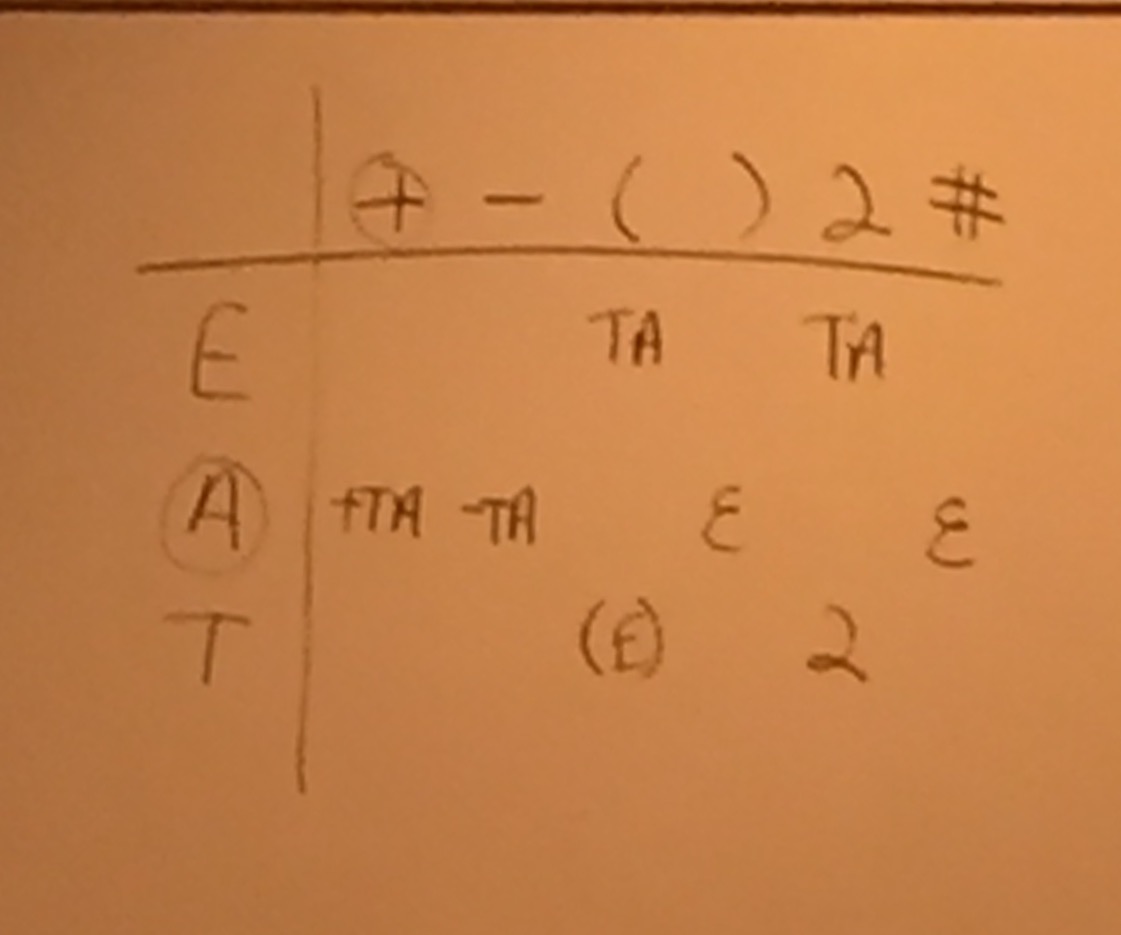 + - ( ) 2 #
E TA TA
A +TA -TA ε ε
T (E) 2